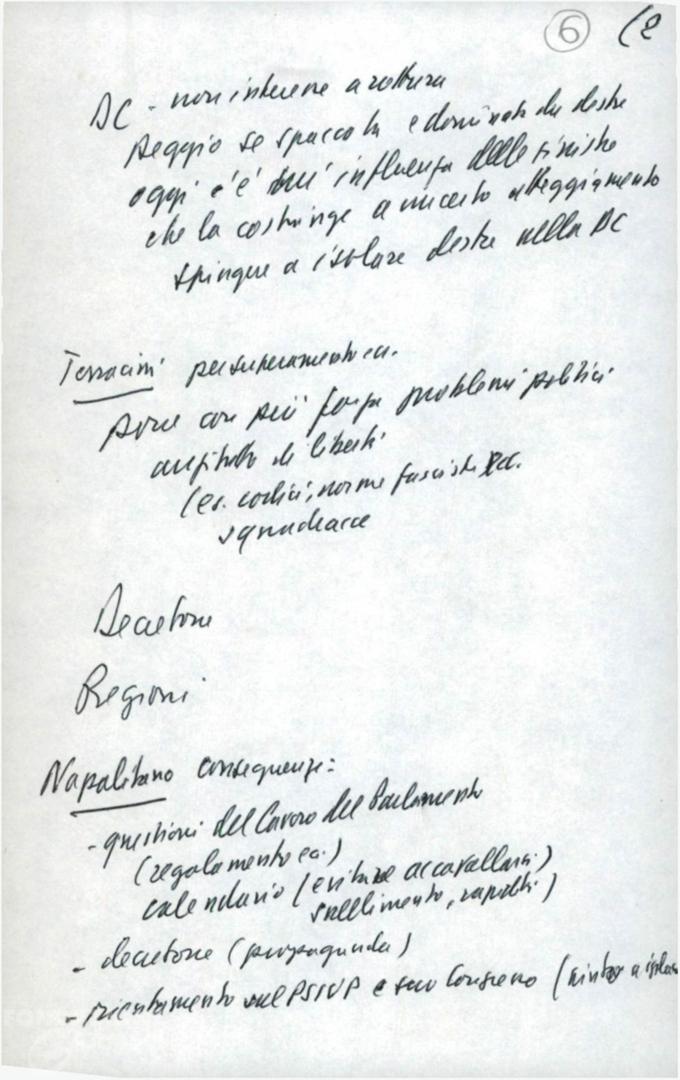 6 (2
DC - non interesse a rottura
peggio se spaccata e dominata da destre
oggi c'è influenza delle sinistre
che la costringe a un certo atteggiamento
spingere a isolare destre nella DC
Terracini per superamento ec.
porre con più forza problemi politici
di libertà
(es. codici, norme fasciste ec.
squadracce
Decretone
Regioni
Napolitano conseguenze:
- questioni del lavoro del Parlamento
(regolamento ec.)
calendario (evitare accavallarsi)
snellimento, rapidità)
- decretone (propaganda)
- orientamento sul PSIUP e suo Congresso (